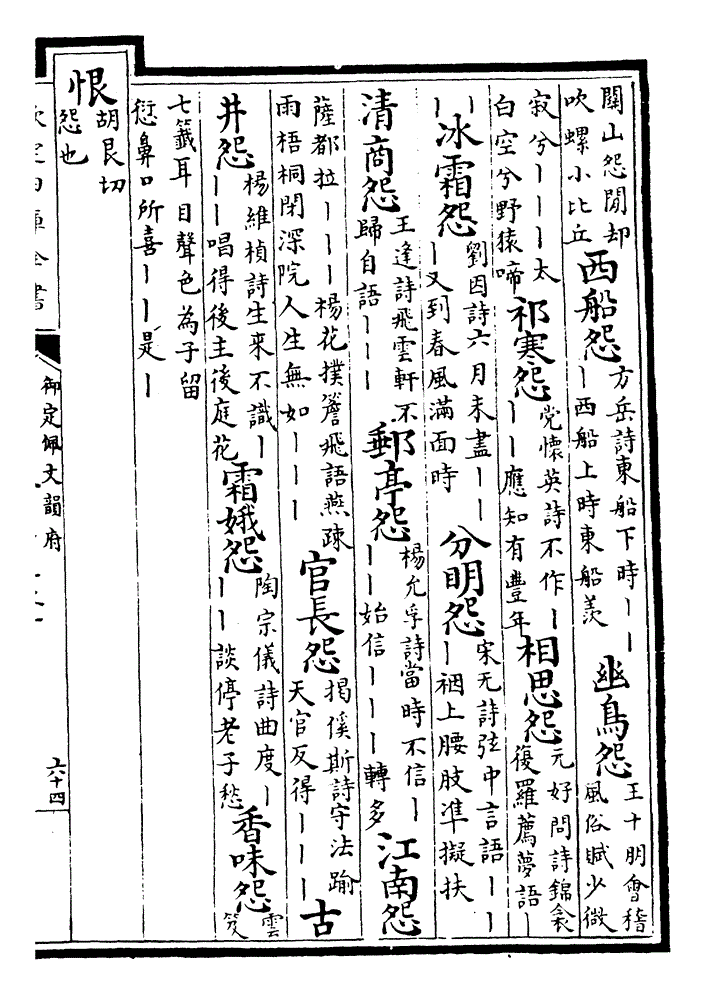 關山怨閒却
吹螺小比丘
西船怨
方岳詩東船下時｜｜
｜西船上時東船羨
幽鳥怨
王十朋會稽
風俗賦少微
寂兮｜｜｜太
白空兮野猿啼
祁寒怨
党懷英詩不作｜
｜｜應知有豐年
相思怨
元好問詩錦衾
復羅薦夢語｜
｜
冰霜怨
劉因詩六月未盡｜｜
｜又到春風滿面時
分明怨
宋无詩弦中言語｜｜
｜裀上腰肢凖擬扶
清商怨
王逢詩飛雲軒不
歸自語｜｜｜
郵亭怨
楊允孚詩當時不信｜
｜｜始信｜｜｜轉多
江南怨
薩都拉｜｜｜楊花撲簷飛語燕疎
雨梧桐閉深院人生無如｜｜｜
官長怨
揭傒斯詩守法踰
天官反得｜｜｜
古
井怨
楊維楨詩生來不識｜
｜｜唱得後主後庭花
霜娥怨
陶宗儀詩曲度｜
｜｜談停老子愁
香味怨
雲
笈
七籤耳目聲色為子留
愆鼻口所喜｜｜是｜
恨
胡艮切
怨也
欽定四庫全書
御定佩文韻府
六十四